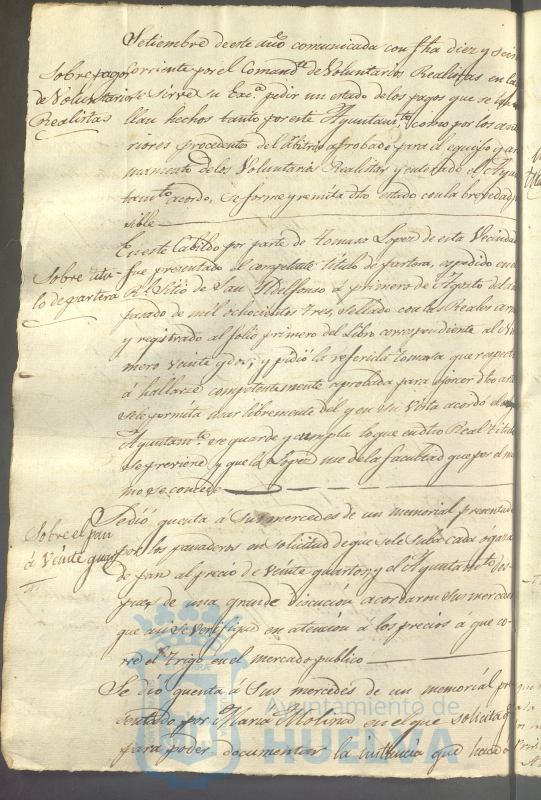 Setiembre de este año comunicada con fha diez y seis
Sobre pagos
de Voluntarios
Realistas
corriente por el Comandte de Voluntarios Realistas en la
se sirve su Exca pedir un estado de los pagos que se
llan hechos tanto por este Ayuntamto como por los ante
riores procedente del Arbitrio aprobado para el equipo y ar
mamento de los Voluntarios Realistas y enterado el Ayun
tamto acordó, se forme y remita dho estado con la brevedad po
sible
En este Cabildo por parte de Tomasa Lopez de esta Vecindad
Sobre titu-
lo de partera
fue presentado el competente titulo de partera, expedido en el
Rl Sitio de San Ildefonso a primero de Agosto del año
pasado de mil ochocientos tres, sellado con las Reales armas
y registrado al folio primero del Libro correspondiente al Nu
mero veinte y dos; y pidió la referida Tomasa que respecto
á hallarse competentemente aprobada para ejercer dho arte
se le permita usar libremente del y en su Vista acordó el
Ayuntamto se guarde y cumpla lo que en dho Real titulo
se previene y que la Lopez use de la facultad que por el mis
mo se concede
Sobre el pan
á veinte quartos
Se dió quenta á Sus mercedes de un memorial presentado
por los panaderos en solicitud de que se le suba cada ogaza
de pan al precio de veinte quartos; y el Ayuntamto des
pues de una grande discucion acordaron sus mercedes
que asi se verifique en atención á los precios a que co
rre el trigo en el mercado publico
Se dió quenta á Sus mercedes de un memorial pre
sentado por Maria Molina en el que solicita q
para poder documentar la instancia que hace
Ayuntamiento de
HUELVA